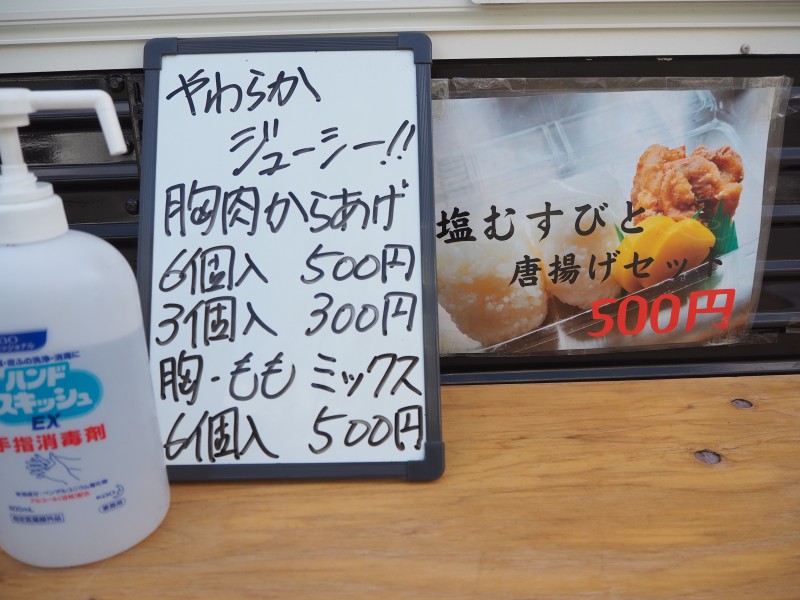 やわらか
ジューシー!!
胸肉からあげ
6個入 500円
3個入 300円
胸・もも ミックス
6個入 500円
塩むすびと
唐揚げセット
500円
ハンド
スキッシュ
EX
手指消毒剤
800mL
指定医薬部外品